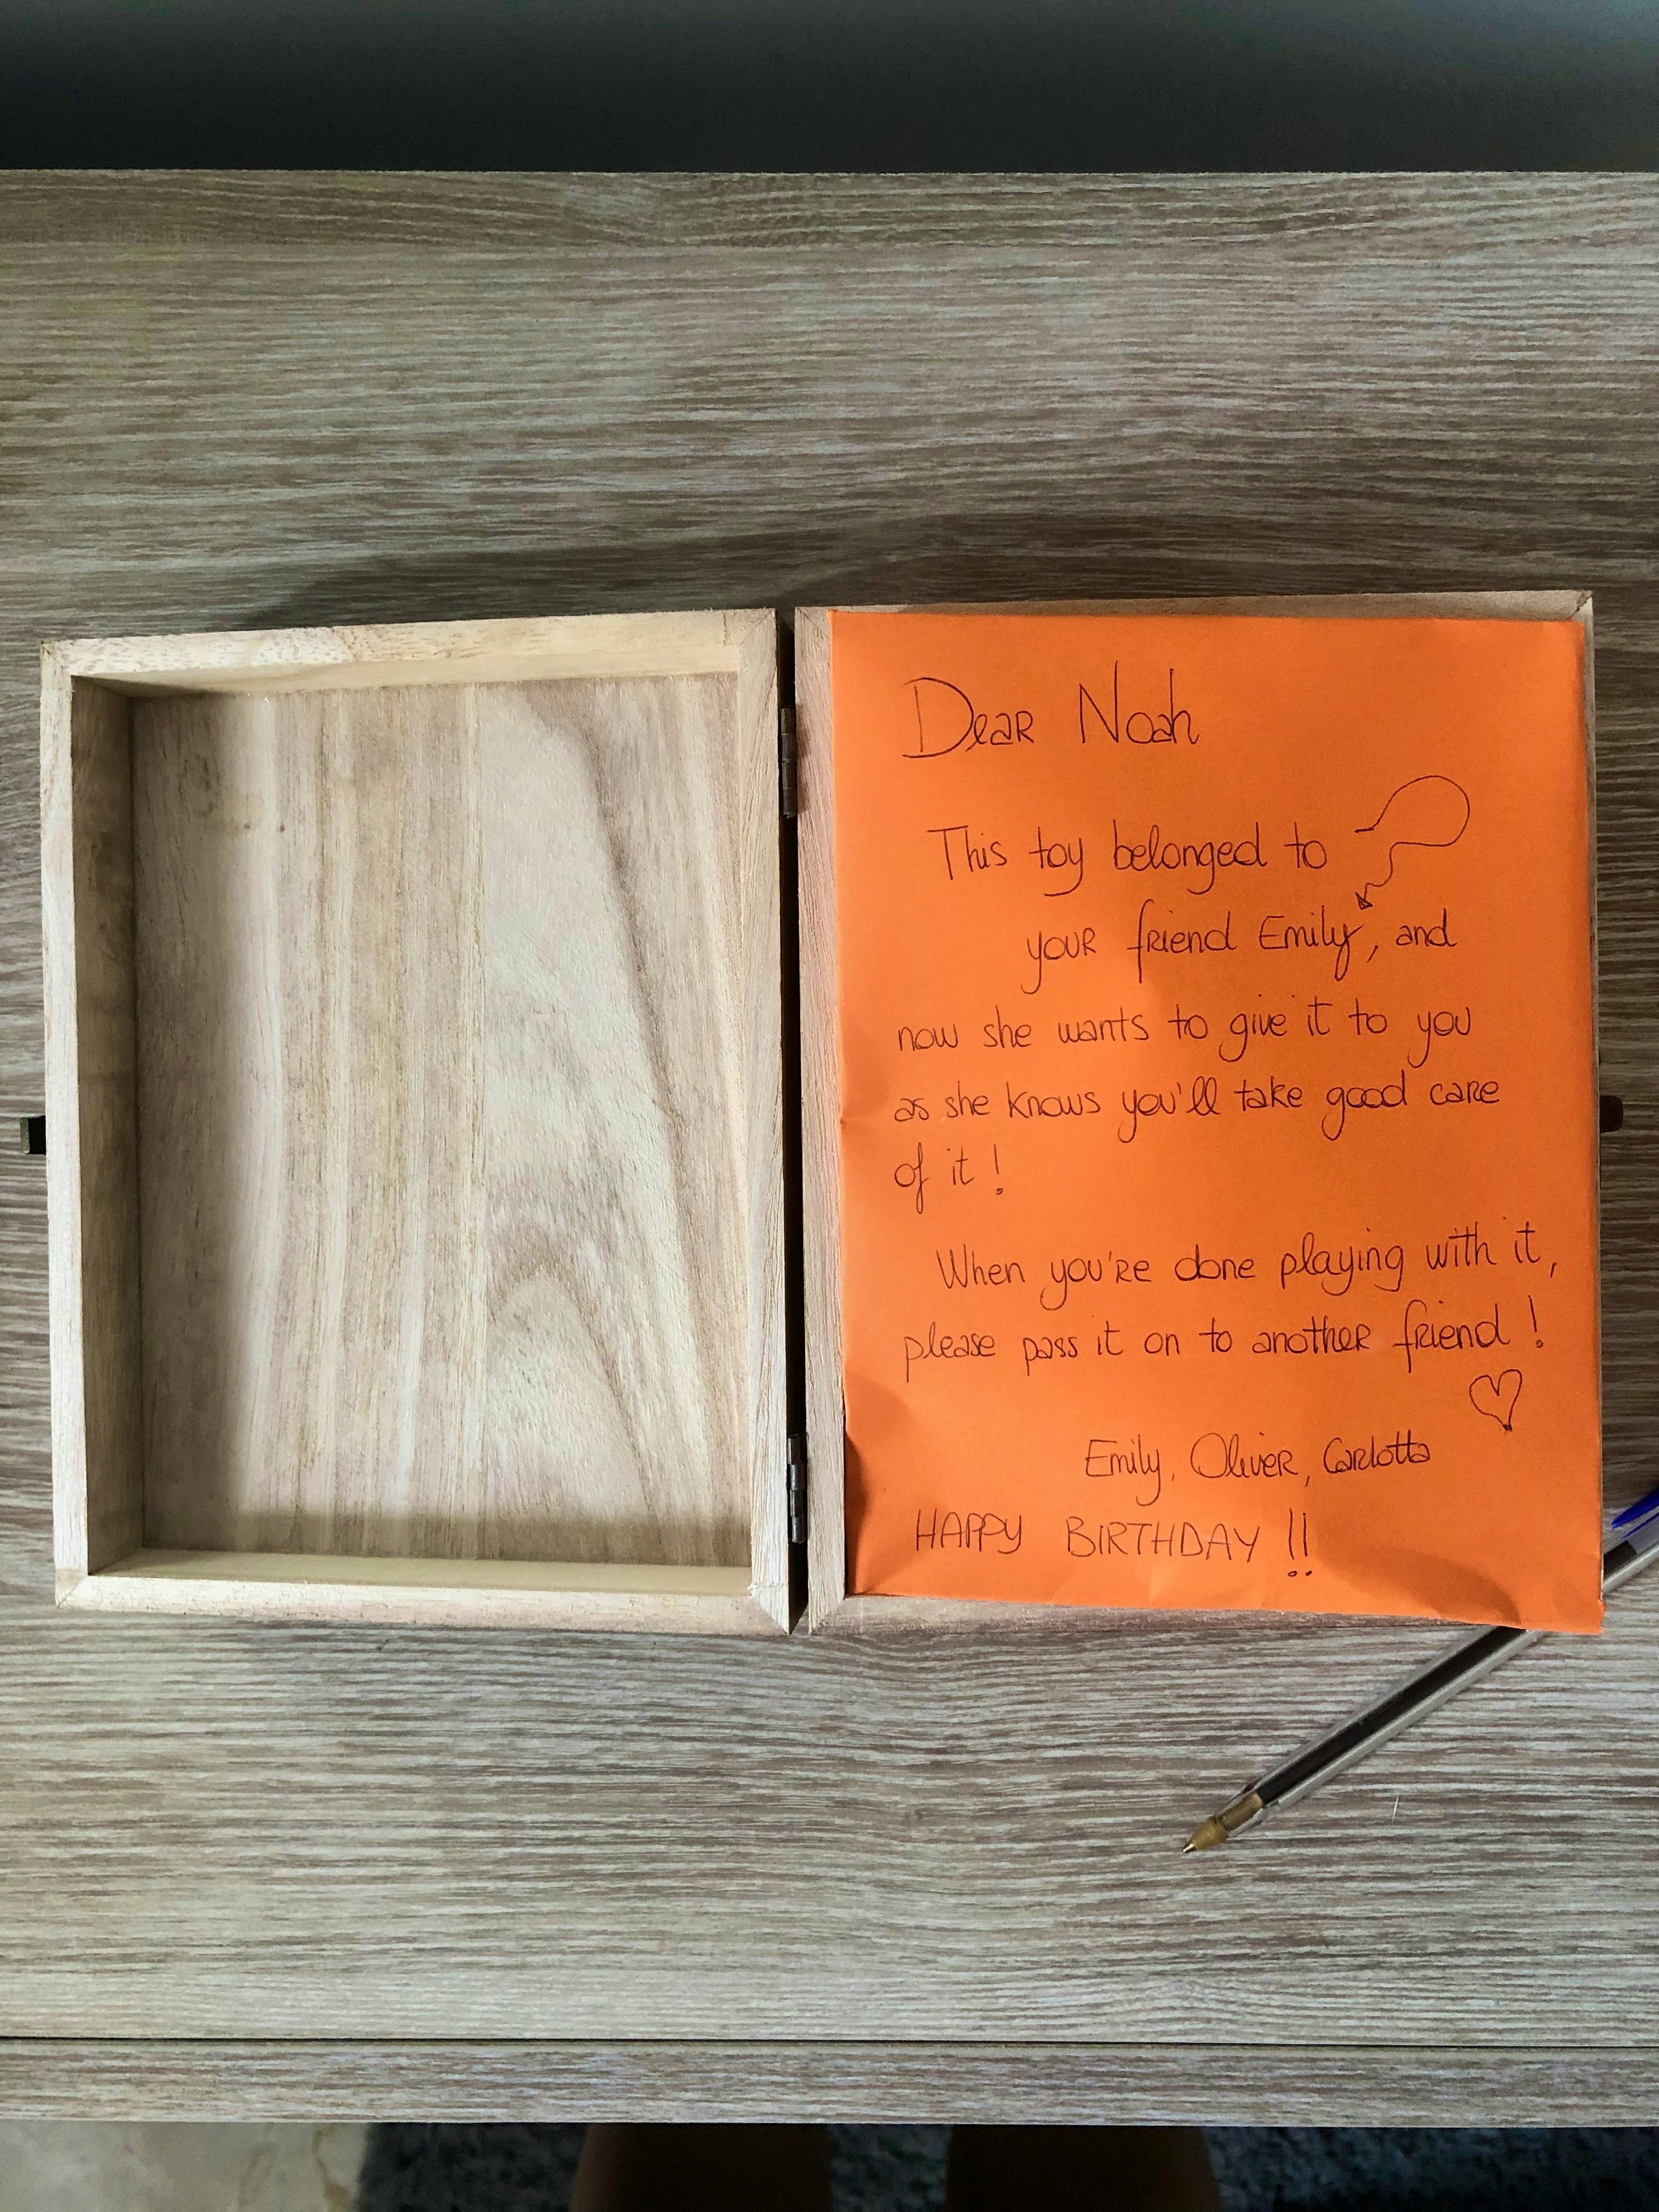 Dear Noah
This toy belonged to
your friend Emily, and
now she wants to give it to you
as she knows you'll take good care
of it!
When you're done playing with it,
please pass it on to another friend!
Emily, Oliver, Carlotta
HAPPY BIRTHDAY !!